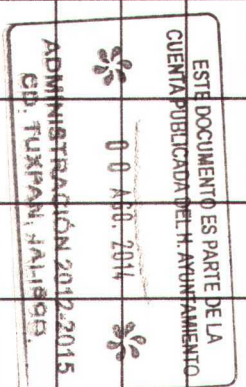 ESTE DOCUMENTO ES PARTE DE LA
CUENTA PUBLICADA DEL H. AYUNTAMIENTO
0 0 AGO. 2014
ADMINISTRACIÓN 2012-2015
CD. TUXPAN, JALISCO.